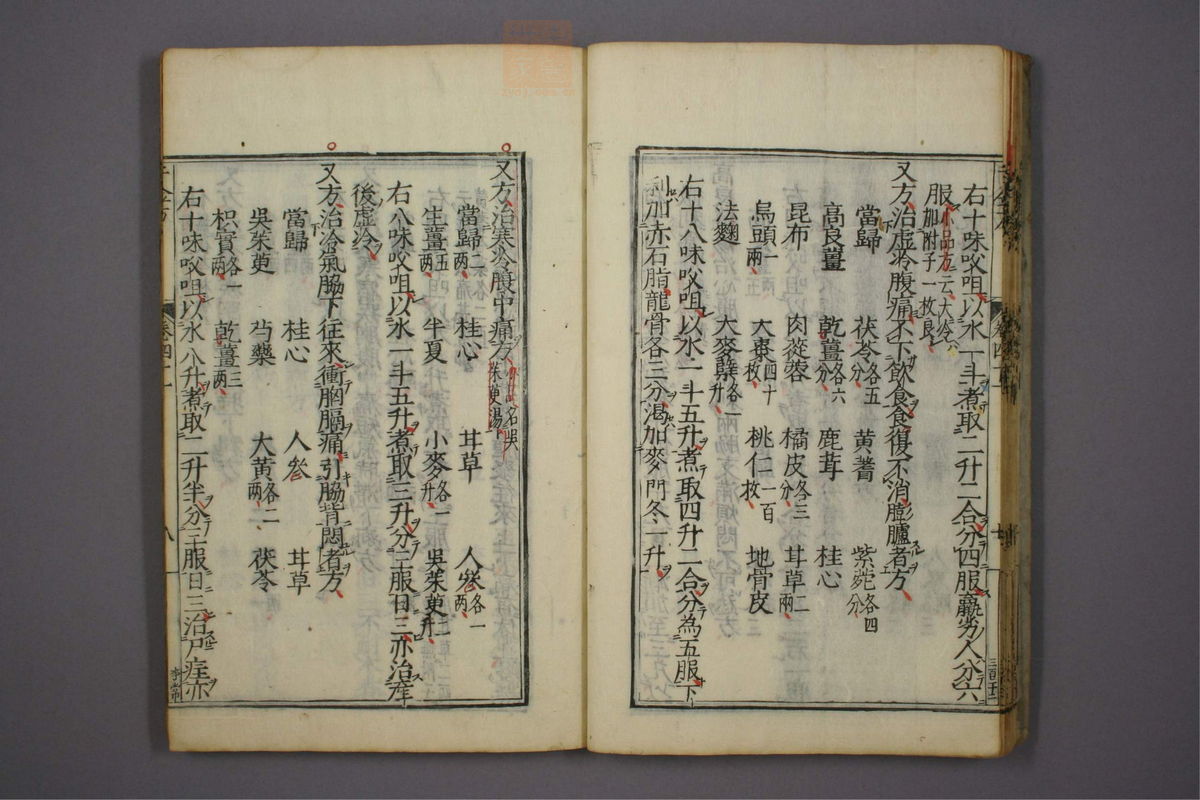 右十味㕮咀以水一斗煮取二升二合分四服羸劣人分六
服小品方云大冷加附子一枚良
又方治虛冷腹痛不下飲食食復不消膨臚者方
當歸 茯苓各五分 黃蓍 紫菀各四分
高良薑 乾薑各六分 鹿茸 桂心
昆布 肉蓯蓉 橘皮各三分 甘草二兩
烏頭一兩 大棗四十枚 桃仁一百枚 地骨皮
法麴 大麥糵各一升
右十八味㕮咀以水一斗五升煮取四升二合分為五服下
利加赤石脂龍骨各三分渴加麥門冬一升
又方治寒冷腹中痛方
當歸二兩 桂心 甘草 人參各一兩
生薑五兩 半夏 小麥各一升 吳茱萸二升
右八味㕮咀以水一斗五升煮取三升分三服日三亦治產
後虛冷
又方治冷氣脇下往來衝胸膈痛引脇背悶者方
當歸 桂心 人參 甘草
吳茱萸 芍藥 大黃各二兩 茯苓
枳實各一兩 乾薑三兩
右十味㕮咀以水八升煮取二升半分三服日三治尸疰亦
卷四十一
八